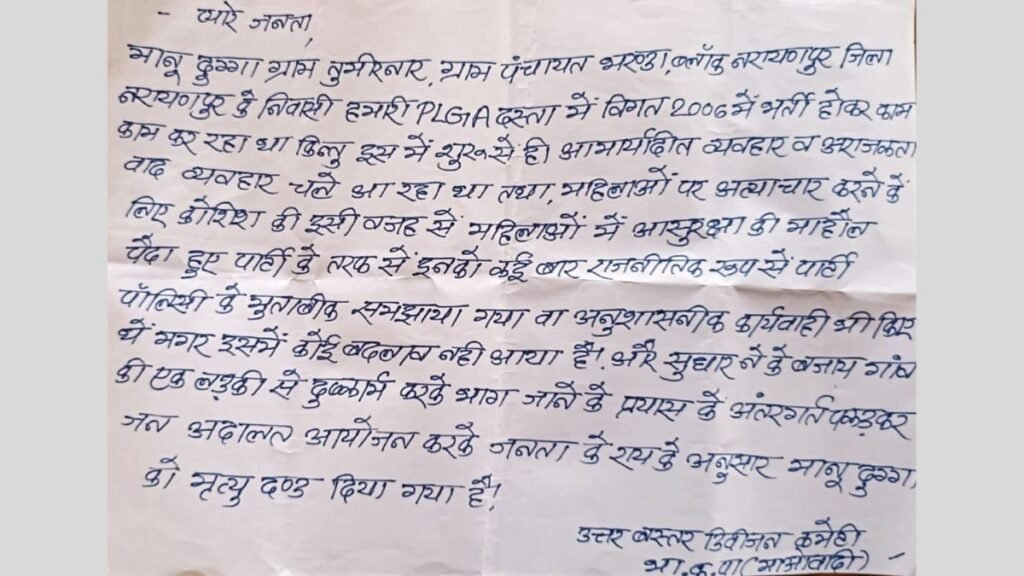 - प्यारे जनता,
भानू दुग्गा ग्राम तुमीरनार, ग्राम पंचायत भरण्डा, ब्लॉक नरायणपुर जिला
नरायणपुर के निवासी हमारी PLGA दस्ता में विगत 2006 में भर्ती होकर काम
काम कर रहा था किन्तु इस में शुरू से ही आमार्यादीत व्यवहार व अराजकता
वाद व्यवहार चले आ रहा था तथा, महिलाओं पर अत्याचार करने के
लिए कोशिश की इसी वजह से महिलाओं में आसुरक्षा की माहौल
पैदा हुए पार्टी के तरफ से इनको कई बार राजनीतिक रूप से पार्टी
पॉलिसी के मुताबीक समझाया गया वा अनुशासनीक कार्यवाही भी किए
थे मगर इसमें कोई बदलाव नही आया है! और सुधारने के बजाय गांव
की एक लड़की से दुष्कार्म करके भाग जाने के प्रयास के अंतरगर्त पकड़कर
जन अदालत आयोजन करके जनता के राय के अनुसार भानू दुग्गा
को मृत्यु दण्ड दिया गया है!
उत्तर बस्तर डिवीजन कमेटी
भा.क.पा (माओवादी) -